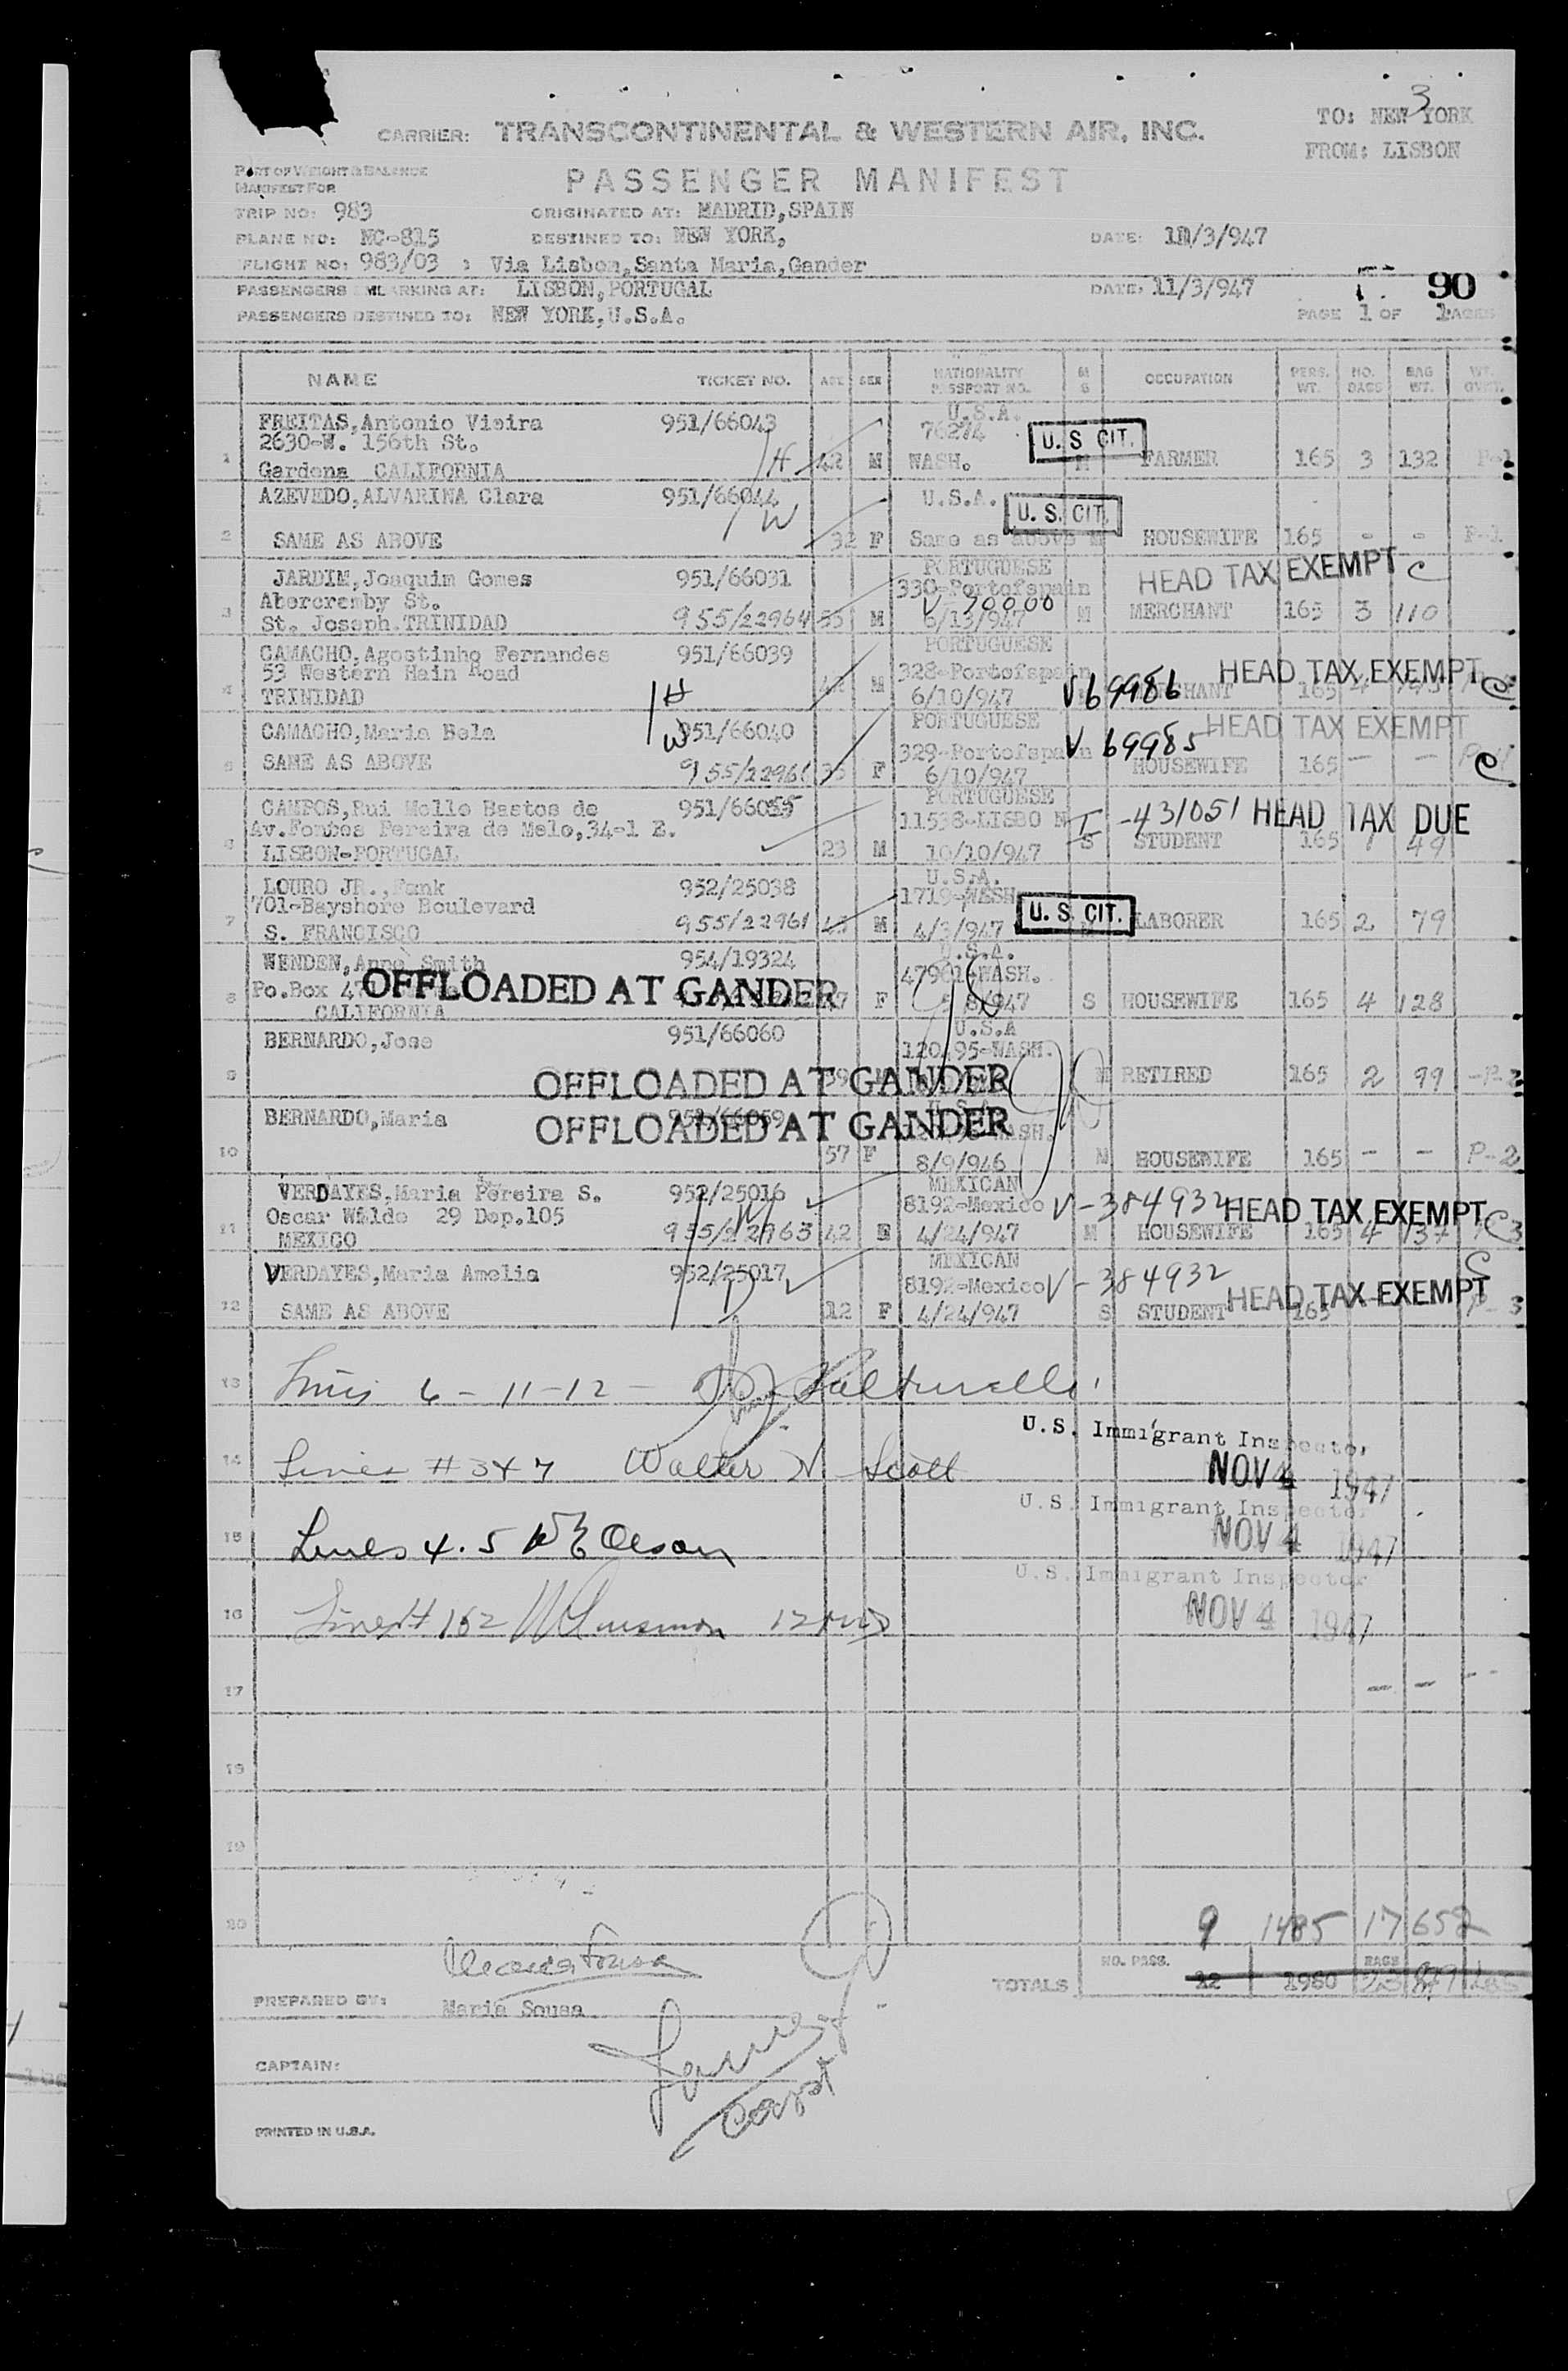 3
TO: NEW YORK
CARRIER: TRANSCONTINENTAL & WESTERN AIR, INC.
FROM: LISBON
PART OF WEIGHT & BALANCE
MANIFEST FOR
PASSENGER MANIFEST
TRIP NO: 983 ORIGINATED AT: MADRID,SPAIN
PLANE NO: NC-815 DESTINED TO: NEW YORK, DATE: 11/3/947
FLIGHT NO: 983/03 : Via Lisbon,Santa Maria,Gander
PASSENGERS EMBARKING AT: LISBON,PORTUGAL DATE: 11/3/947 90
PASSENGERS DESTINED TO: NEW YORK,U.S.A. PAGE 1 OF 1 PAGES
NAME TICKET NO. AGE SEX NATIONALITY PASSPORT NO. M S OCCUPATION PERS. WT. NO. BAGS BAG WT. WT. GVRT.
FREITAS,Antonio Vieira 951/66043 U.S.A.
2630-W. 156th St. 76274 U.S CIT.
1 Gardena CALIFORNIA H 42 M WASH. M FARMER 165 3 132 P-1
AZEVEDO,ALVARINA Clara 951/66044 U.S.A. U.S. CIT.
W
2 SAME AS ABOVE 32 F Same as above M HOUSEWIFE 165 - - P-1
JARDIM,Joaquim Gomes 951/66031 PORTUGUESE HEAD TAX EXEMPT C
Abercremby St. 330-Portofspain
V-70000
3 St. Joseph.TRINIDAD 955/22964 55 M 6/13/947 M MERCHANT 165 3 110
CAMACHO,Agostinho Fernandes 951/66039 PORTUGUESE
53 Western Main Road 328-Portofspain HEAD TAX EXEMPT C
4 TRINIDAD H M 6/10/947 V69986 165 4
CAMACHO,Maria Bela W 951/66040 PORTUGUESE HEAD TAX EXEMPT
329-Portofspain V 69985
5 SAME AS ABOVE 955/22961 35 F 6/10/947 HOUSEWIFE 165 - - C
CAMPOS,Rui Mello Bastos de 951/66055 PORTUGUESE
Av.Fontes Pereira de Melo,34-1 E. 11538-LISBO N T -431051 HEAD TAX DUE
6 LISBON-PORTUGAL 23 M 10/10/947 S STUDENT 165 1 49
LOURO JR.,Fank 952/25038 U.S.A.
701-Bayshore Boulevard 1719-WASH U.S. CIT.
7 S. FRANCISCO 955/22961 M 4/3/947 LABORER 165 2 79
WENDEN,Anne Smith 954/19324 U.S.A.
Po.Box OFFLOADED AT GANDER 47961-WASH.
8 CALIFORNIA F S HOUSEWIFE 165 4 128
BERNARDO,Jose 951/66060 U.S.A
120195-WASH.
9 OFFLOADED AT GANDER M RETIRED 165 2 99 -P-2
BERNARDO,Maria 951/66059 OFFLOADED AT GANDER
10 57 F 8/9/946 M HOUSEWIFE 165 - - P-2
VERDAYES,Maria Pereira S. 952/25016 MEXICAN
Oscar Wilde 29 Dep.105 8192-Mexico V-384932 HEAD TAX EXEMPT C
11 MEXICO 955/22963 42 F 4/24/947 M HOUSEWIFE 165 4 137 3
VERDAYES,Maria Amelia 952/25017 MEXICAN C
8192-Mexico V-384932 HEAD TAX EXEMPT
12 SAME AS ABOVE 12 F 4/24/947 S STUDENT 165 P-3
13 6-11-12-
U.S. Immigrant Inspector
14 Lines #3&7 Walter N. Scott NOV 4 1947
U.S. Immigrant Inspector
15 Lines 4.5 WE Olson NOV 4 1947
U.S. Immigrant Inspector
16 Line# 1&2 NOV 4 1947
17
18
19
20 9 1485 17 652
Maria Sousa
TOTALS NO. PASS. 12 1980 BAGS
PREPARED BY: Maria Sousa
CAPTAIN:
Capt
PRINTED IN U.S.A.